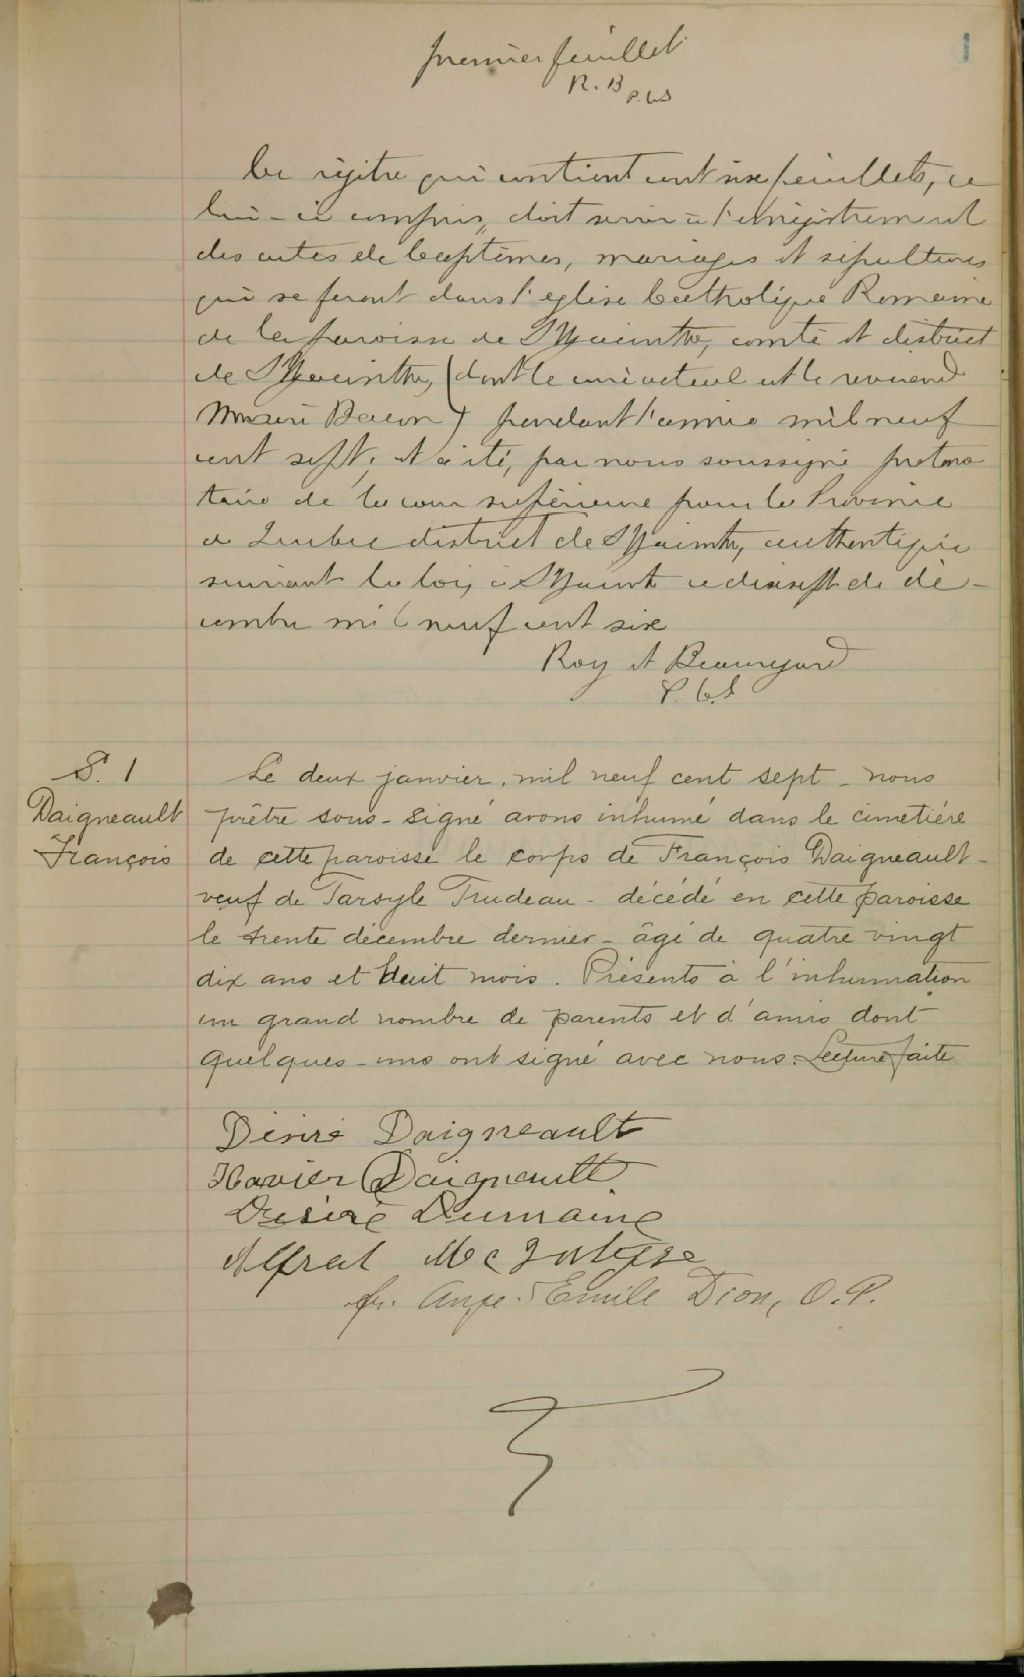 premier feuillet
1
R. B
P.C.S
Ce registre qui contient cent six feuillets, ce
lui-ci compris, doit servir à l'enregistrement
des actes de baptêmes, mariages et sépultures
qui se feront dans l'église Catholique Romaine
de la paroisse de St Hyacinthe, comté et district
de St Hyacinthe, (dont le curé actuel est le révérend
) pendant l'année mil neuf
cent sept, et a été, par nous soussigné protono
taire de la cour supérieure pour la Province
de Québec district de St Hyacinthe, authentiqué
suivant la loi, à St Hyacinthe ce dixsept de dé-
cembre mil neuf cent six
Roy et Beauregard
P.C.S
S. 1
Daigneault
François
Le deux janvier, mil neuf cent sept - nous
prêtre sous-signé avons inhumé dans le cimetière
de cette paroisse le corps de François Daigneault -
veuf de Tarsyle Trudeau - décédé en cette paroisse
le trente décembre dernier - âgé de quatre vingt
dix ans et huit mois. Présents à l'inhumation
un grand nombre de parents et d'amis dont
quelques-uns ont signé avec nous. Lecture faite
Désiré Daigneault
Xavier Daigneault
Désiré Dumaine
fr. Ange-Emile Dion, O.P.